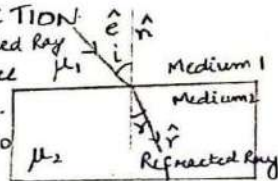 CTION
ê n̂
ed Ray
μ₁ i Medium 1
Medium 2
r r̂
μ₂ Refracted Ray